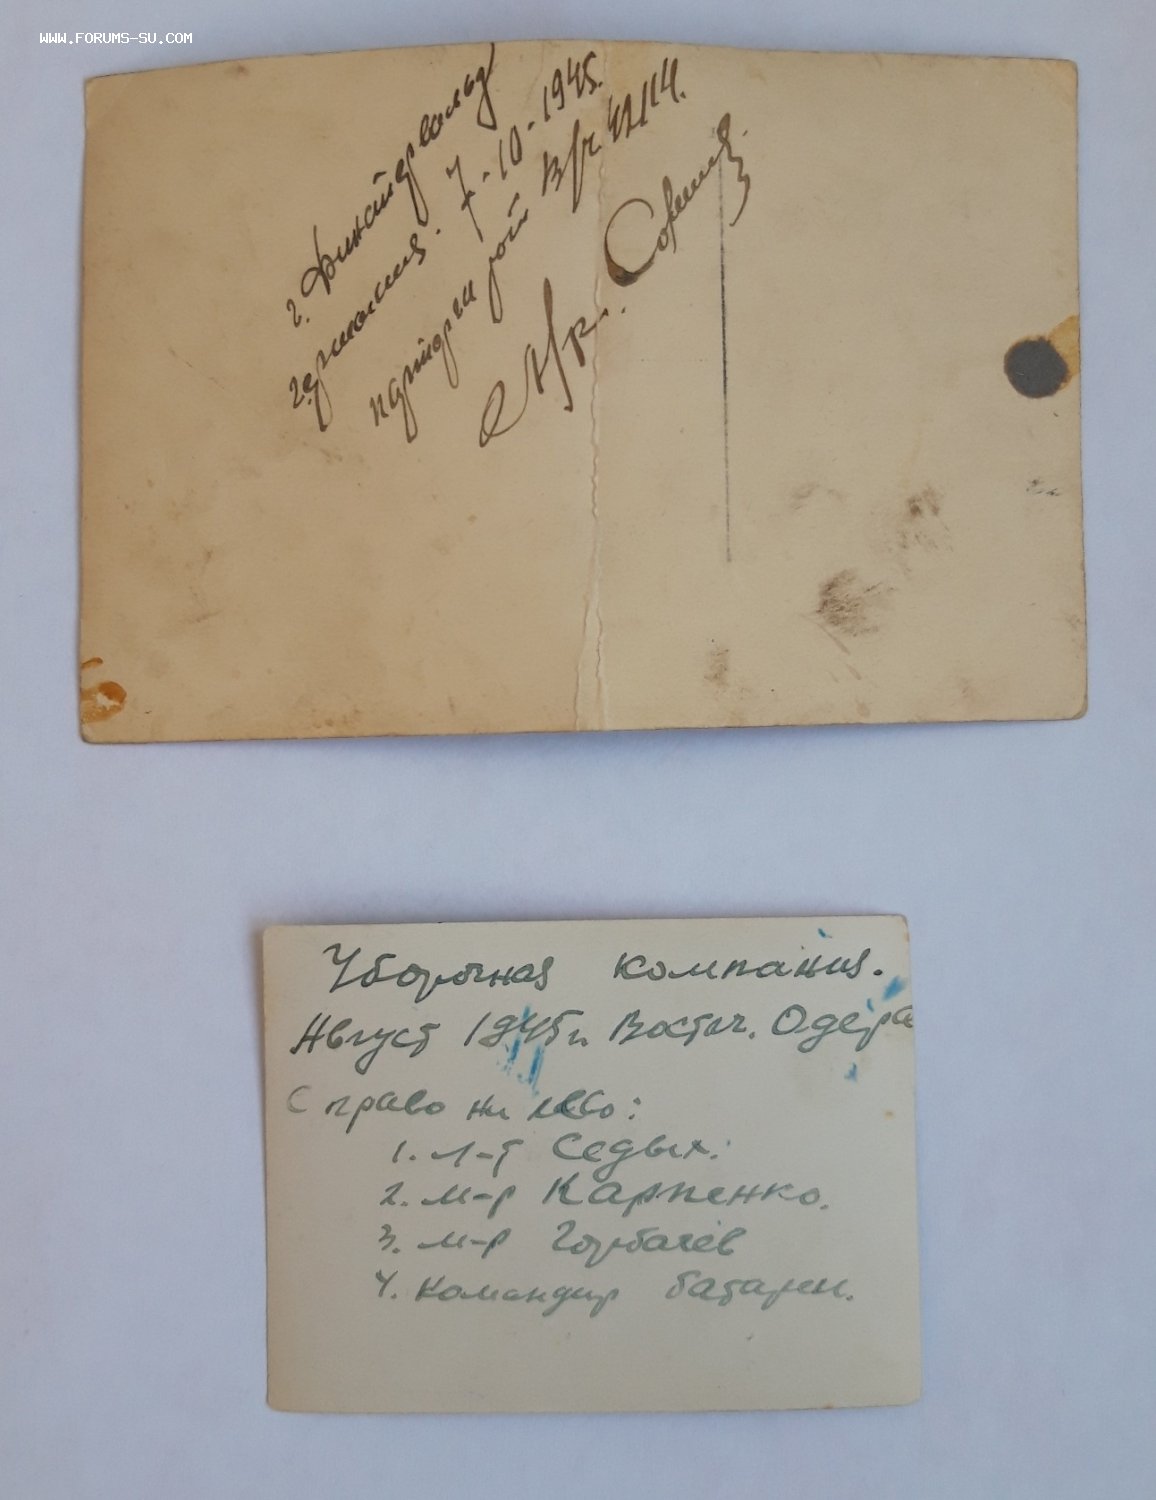 WWW.FORUMS-SU.COM
г. Финстервольд
Германия. 7-10-1945.
парторги рот в/ч 42114.
Уборочная компания.
Август 1945 г. Восточ. Одера
С право на лево:
1. л-т Седых.
2. м-р Карпенко.
3. м-р Горбачёв
4. Командир батареи.